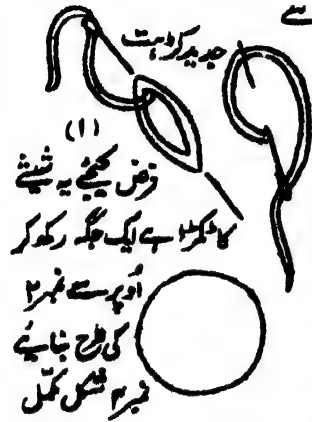 سے
جدید کڑہت
(۱)
فرض کیجئے یہ شیشے
کا ٹکڑا ہے ایک جگہ رکھ کر
اُوپر سے نمبر ۲
کی طرح بنائیے
نمبر ۳ شکل مکمل